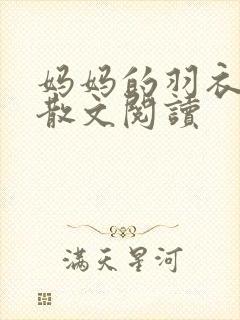 妈妈的羽衣
散文阅讀
满天星河